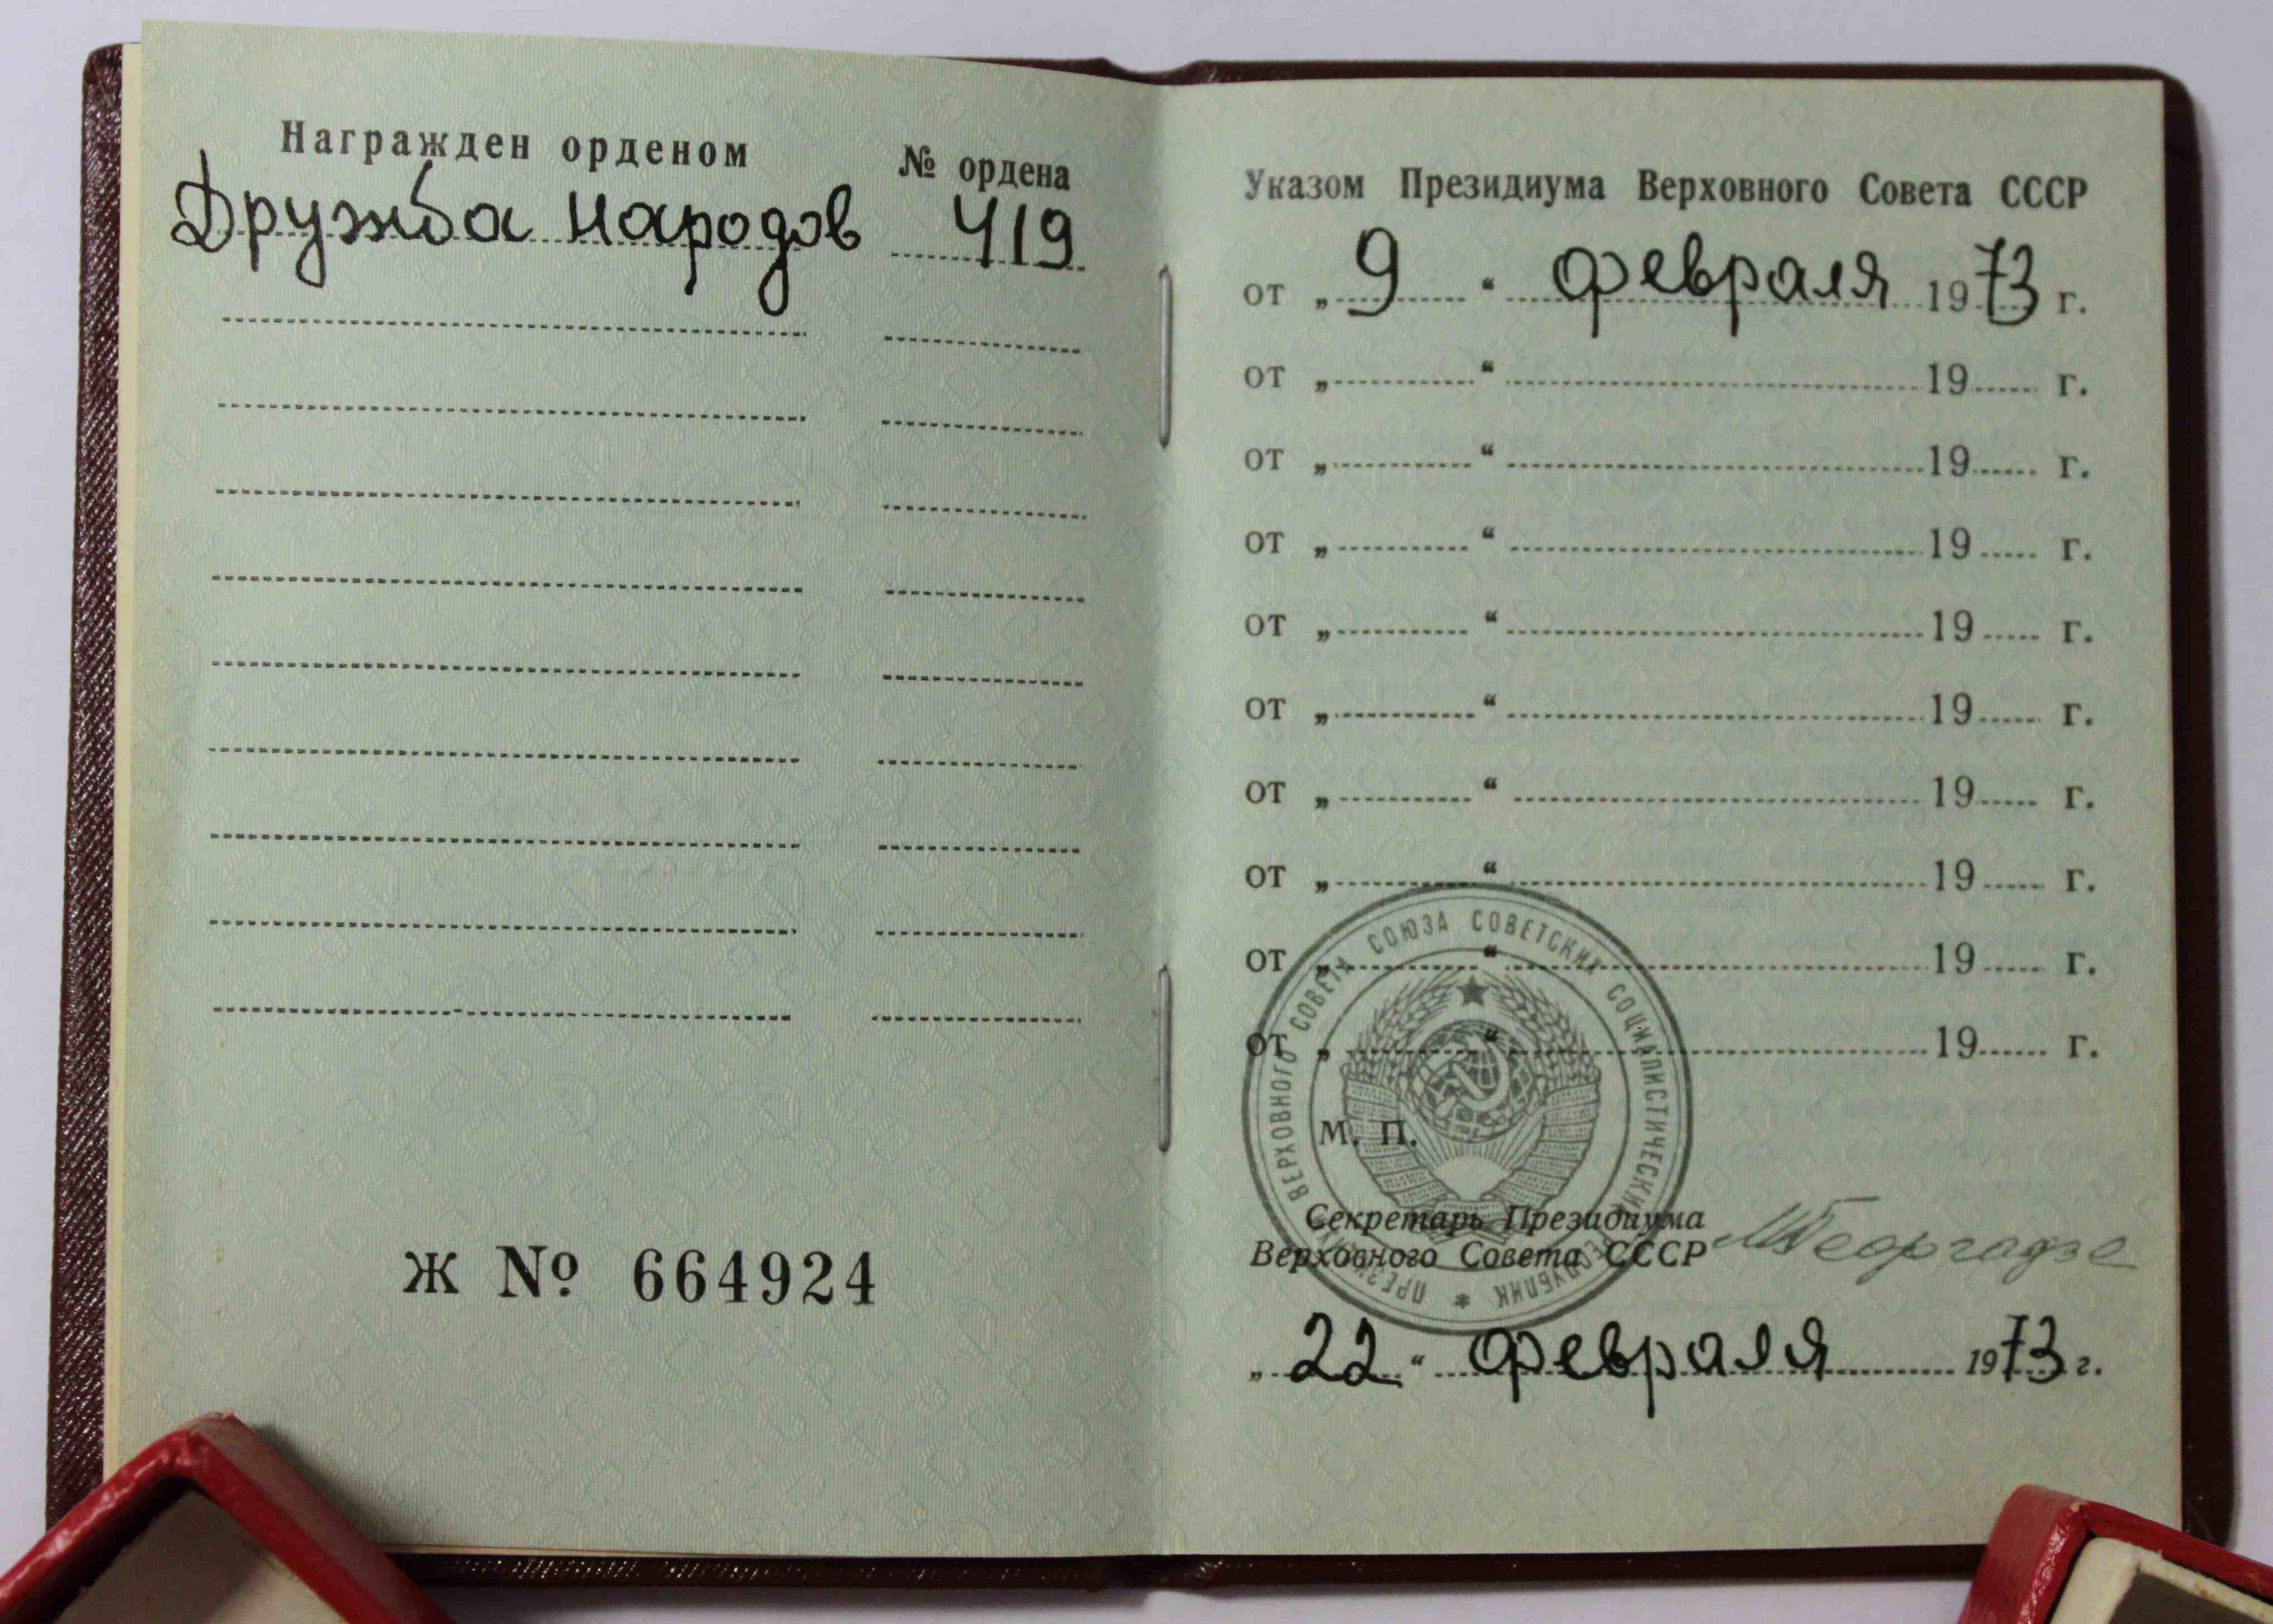 Награжден орденом
№ ордена
Дружба народов
419
Ж № 664924
Указом Президиума Верховного Совета СССР
от „ 9 “ февраля 1973 г.
от „ “ 19 г.
от „ “ 19 г.
от „ “ 19 г.
от „ “ 19 г.
от „ “ 19 г.
от „ “ 19 г.
от „ “ 19 г.
от „ “ 19 г.
от „ “ 19 г.
от „ “ 19 г.
ПРЕЗИДИУМ ВЕРХОВНОГО СОВЕТА СОЮЗА СОВЕТСКИХ СОЦИАЛИСТИЧЕСКИХ РЕСПУБЛИК *
М. П.
Секретарь Президиума
Верховного Совета СССР
МГеоргадзе
„ 22 “ февраля 1973 г.